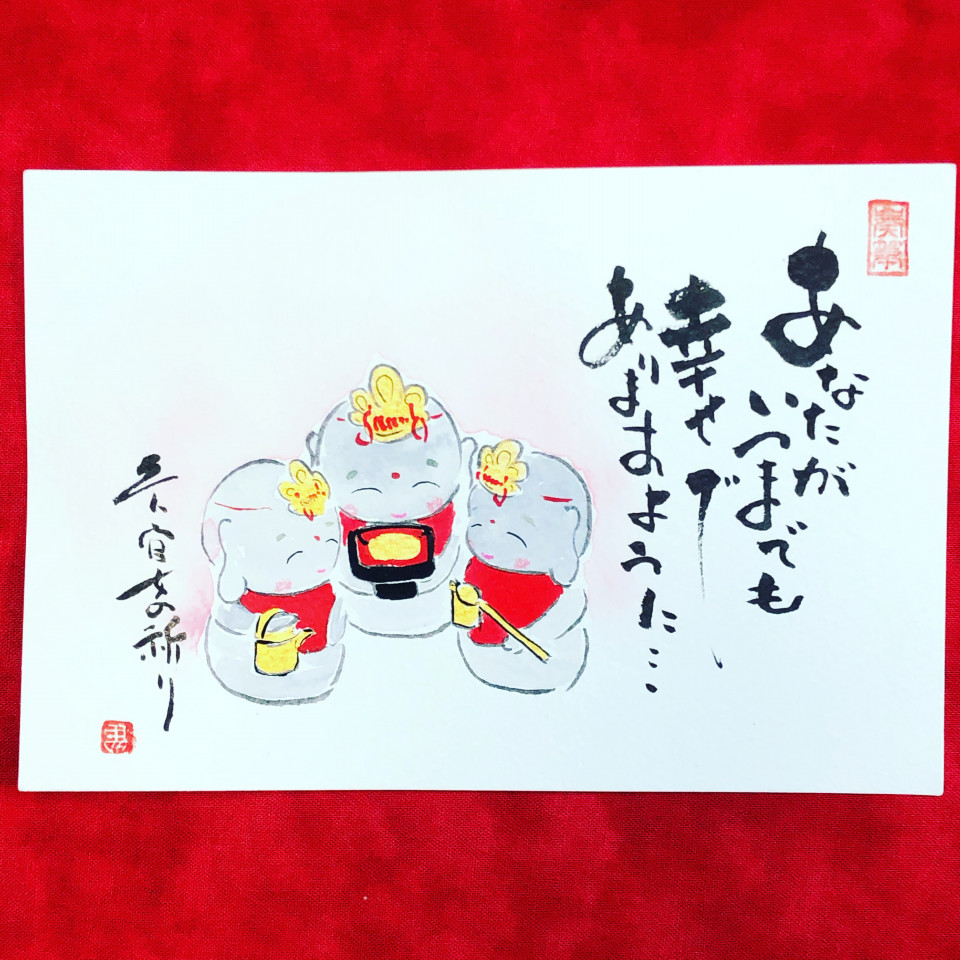 あなたが
いつまでも
幸せで
ありますように…
の祈り